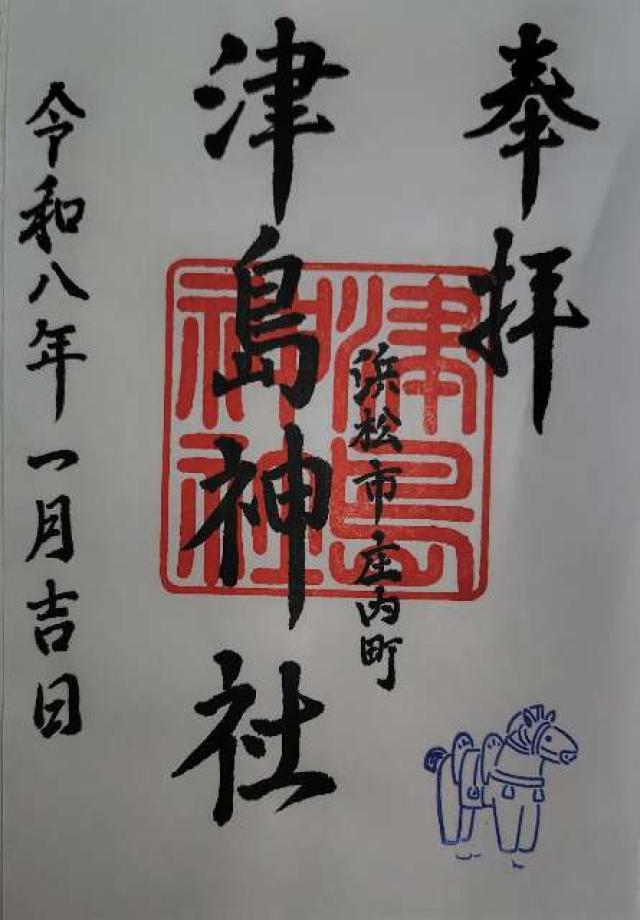 奉拝
浜松市庄内町
津島神社
津島神社
令和八年一月吉日